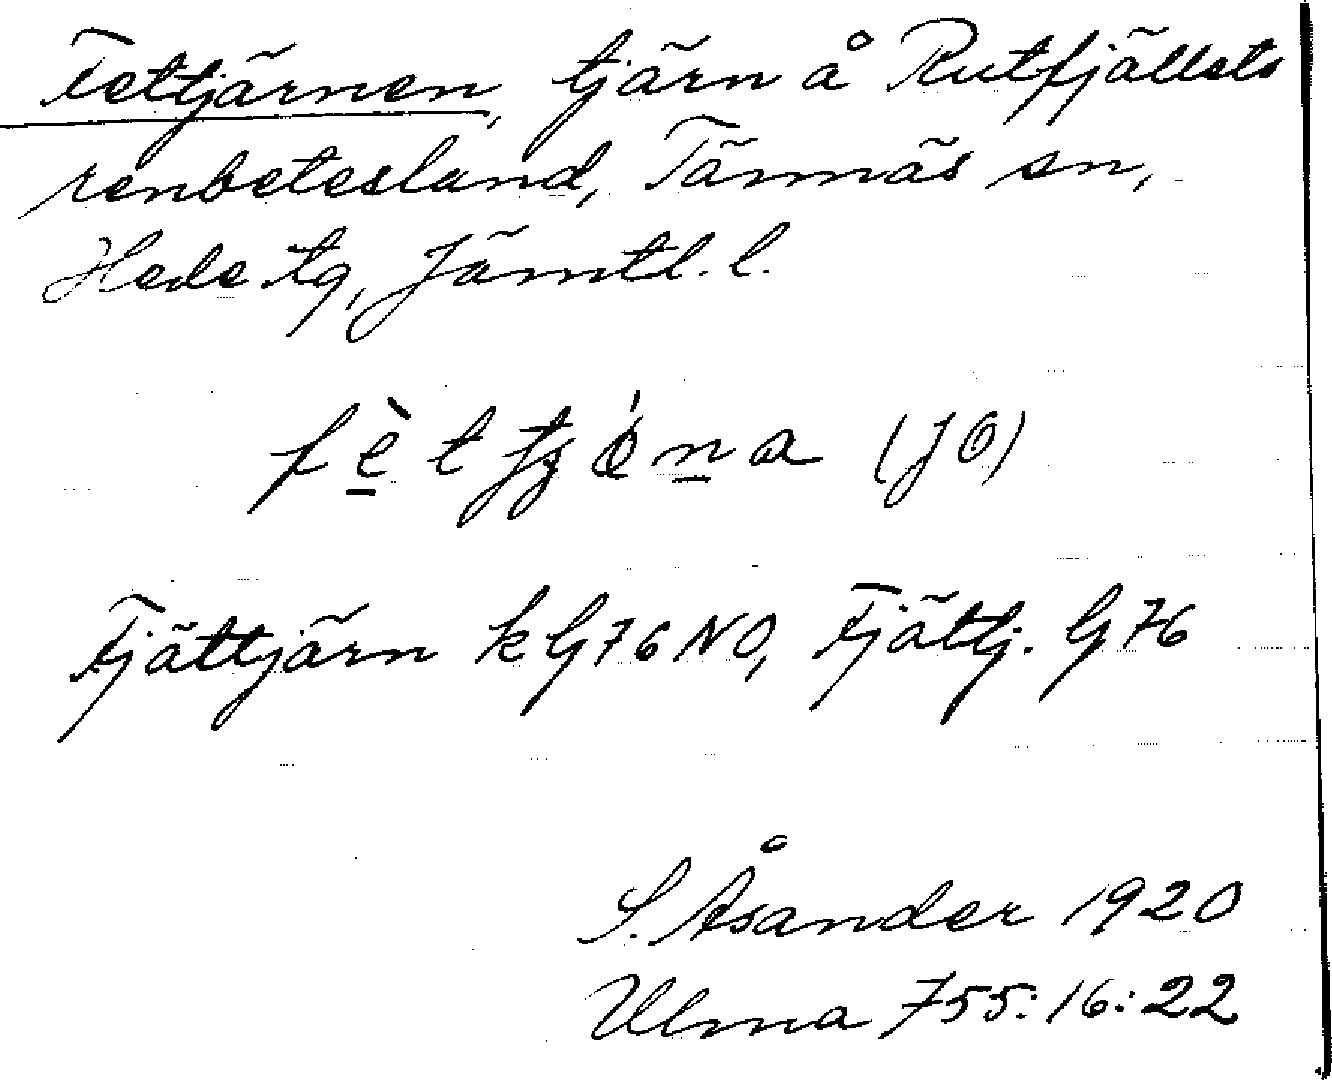 Fettjärnen, tjärn å Rutfjällets
renbetesland, Tännäs sn,
Hede tg, Jämtl. l.
(JÖ)
Fjättjärn k G76 NO, Fjättj. G 76
S. Åsander 1920
Ulma 755:16:22